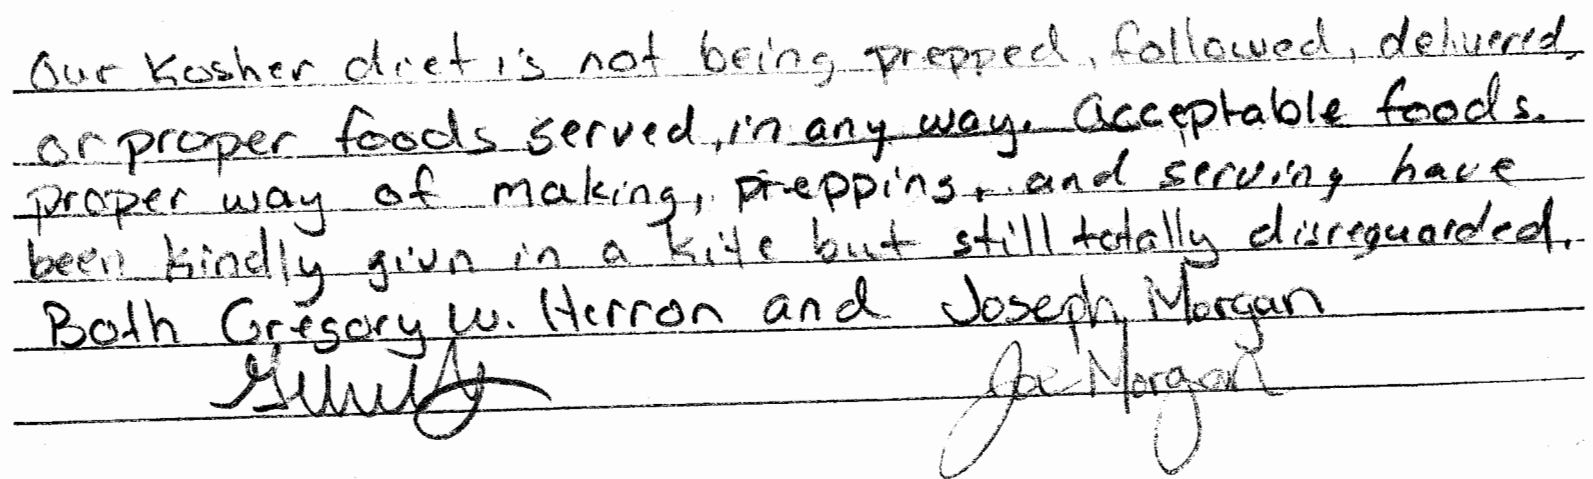 Our Kosher diet is not being prepped, followed, delivered,
or proper foods served, in any way. Acceptable foods.
proper way of making, prepping, and serving have
been kindly givn in a kite but still totally disreguarded.
Both Gregory W. Herron and Joseph Morgan
Joe Morgan